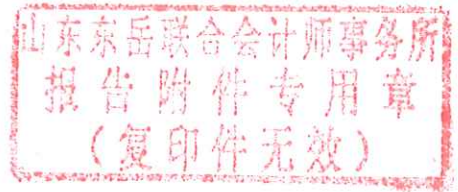 山东东岳联合会计师事务所
报告附件专用章
（复印件无效）